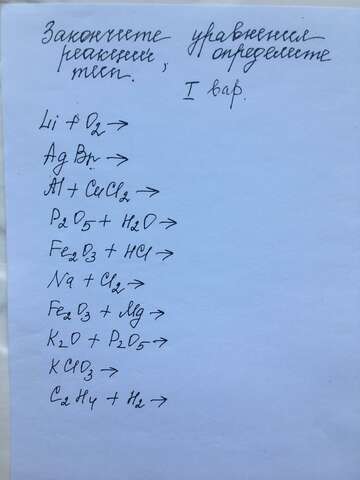 Закончите уравнения
реакций, определите
тип.
I вар.
Li + O₂ →
AgBr →
Al + CuCl₂ →
P₂O₅ + H₂O →
Fe₂O₃ + HCl →
Na + Cl₂ →
Fe₂O₃ + Mg →
K₂O + P₂O₅ →
KClO₃ →
C₂H₄ + H₂ →